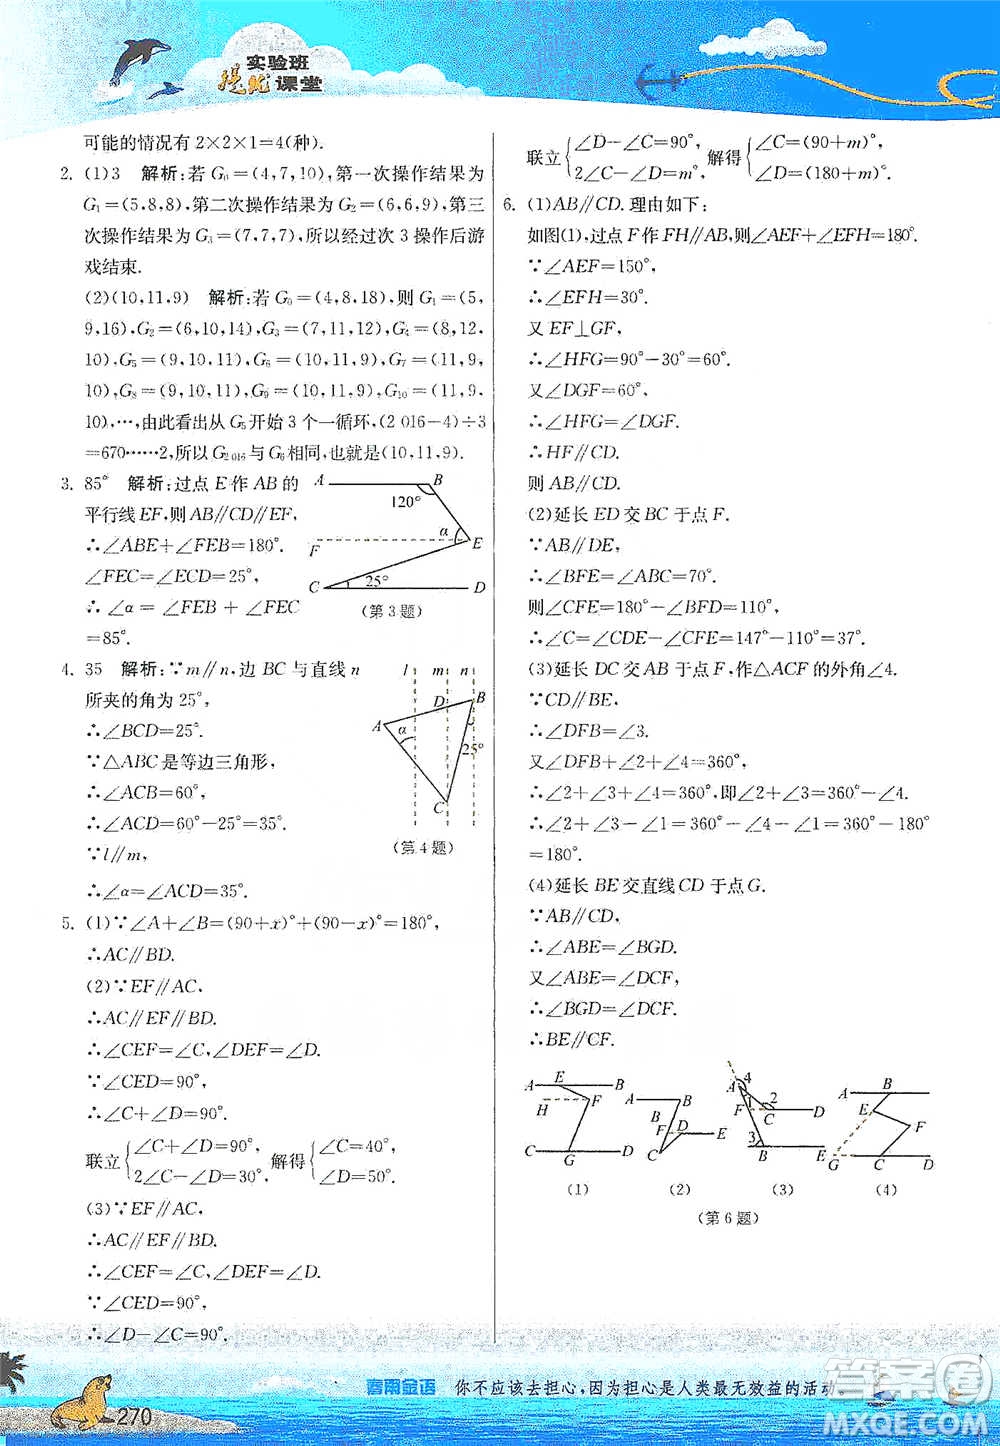 实验班
提优课堂
可能的情况有 2×2×1=4(种).
2. (1)3　解析:若 G₀=(4,7,10),第一次操作结果为
G₁=(5,8,8),第二次操作结果为 G₂=(6,6,9),第三
次操作结果为 G₃=(7,7,7),所以经过次 3 操作后游
戏结束.
(2)(10,11,9)　解析:若 G₀=(4,8,18),则 G₁=(5,
9,16),G₂=(6,10,14),G₃=(7,11,12),G₄=(8,12,
10),G₅=(9,10,11),G₆=(10,11,9),G₇=(11,9,
10),G₈=(9,10,11),G₉=(10,11,9),G₁₀=(11,9,
10),…,由此看出从 G₅开始 3 个一循环,(2 016-4)÷3
=670……2,所以 G₂ ₀₁₆与 G₆相同,也就是(10,11,9).
3. 85°　解析:过点 E 作 AB 的
平行线 EF,则 AB∥CD∥EF,
∴∠ABE+∠FEB=180°.
∠FEC=∠ECD=25°,
∴∠α=∠FEB+∠FEC
=85°.
A B 120° α F E C 25° D
(第 3 题)
4. 35　解析:∵m∥n,边 BC 与直线 n
所夹的角为 25°,
∴∠BCD=25°.
∵△ABC 是等边三角形,
∴∠ACB=60°,
∴∠ACD=60°-25°=35°.
∵l∥m,
∴∠α=∠ACD=35°.
l m n D B A α 25° C
(第 4 题)
5. (1)∵∠A+∠B=(90+x)°+(90-x)°=180°,
∴AC∥BD.
(2)∵EF∥AC,
∴AC∥EF∥BD.
∴∠CEF=∠C,∠DEF=∠D.
∵∠CED=90°,
∴∠C+∠D=90°.
联立{∠C+∠D=90°, 2∠C-∠D=30°, 解得{∠C=40°, ∠D=50°.
(3)∵EF∥AC,
∴AC∥EF∥BD.
∴∠CEF=∠C,∠DEF=∠D.
∵∠CED=90°,
∴∠D-∠C=90°.
联立{∠D-∠C=90°, 2∠C-∠D=m°, 解得{∠C=(90+m)°, ∠D=(180+m)°.
6. (1)AB∥CD.理由如下:
如图(1),过点 F 作 FH∥AB,则∠AEF+∠EFH=180°.
∵∠AEF=150°,
∴∠EFH=30°.
又 EF⊥GF,
∴∠HFG=90°-30°=60°.
又∠DGF=60°,
∴∠HFG=∠DGF.
∴HF∥CD.
则 AB∥CD.
(2)延长 ED 交 BC 于点 F.
∵AB∥DE,
∴∠BFE=∠ABC=70°.
则∠CFE=180°-∠BFD=110°,
∴∠C=∠CDE-∠CFE=147°-110°=37°.
(3)延长 DC 交 AB 于点 F,作△ACF 的外角∠4.
∵CD∥BE,
∴∠DFB=∠3.
又∠DFB+∠2+∠4=360°,
∴∠2+∠3+∠4=360°,即∠2+∠3=360°-∠4.
∴∠2+∠3-∠1=360°-∠4-∠1=360°-180°
=180°.
(4)延长 BE 交直线 CD 于点 G.
∵AB∥CD,
∴∠ABE=∠BGD.
又∠ABE=∠DCF,
∴∠BGD=∠DCF.
∴BE∥CF.
A E B H F C G D
A B B F D E C
4 A 1 2 F C D 3 B E
A B E F G C D
(1) (2) (3) (4)
(第 6 题)
270
春雨金语　你不应该去担心,因为担心是人类最无效益的活动
答案圈
MXQE.COM